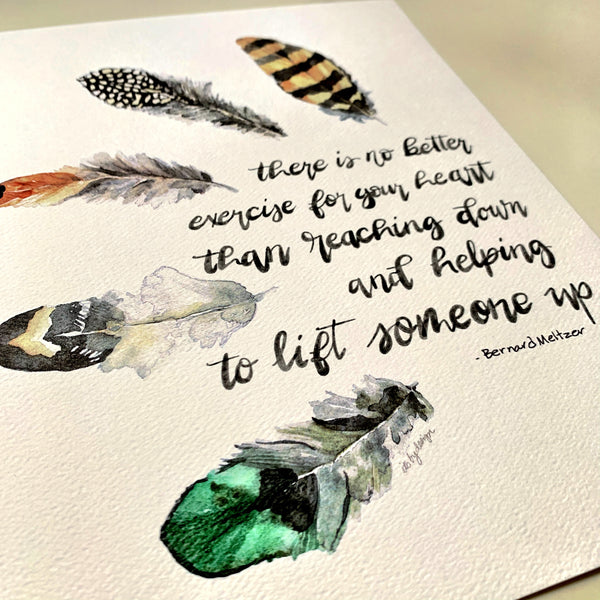 there is no better
exercise for your heart
than reaching down
and helping
to lift someone up
- Bernard Meltzer